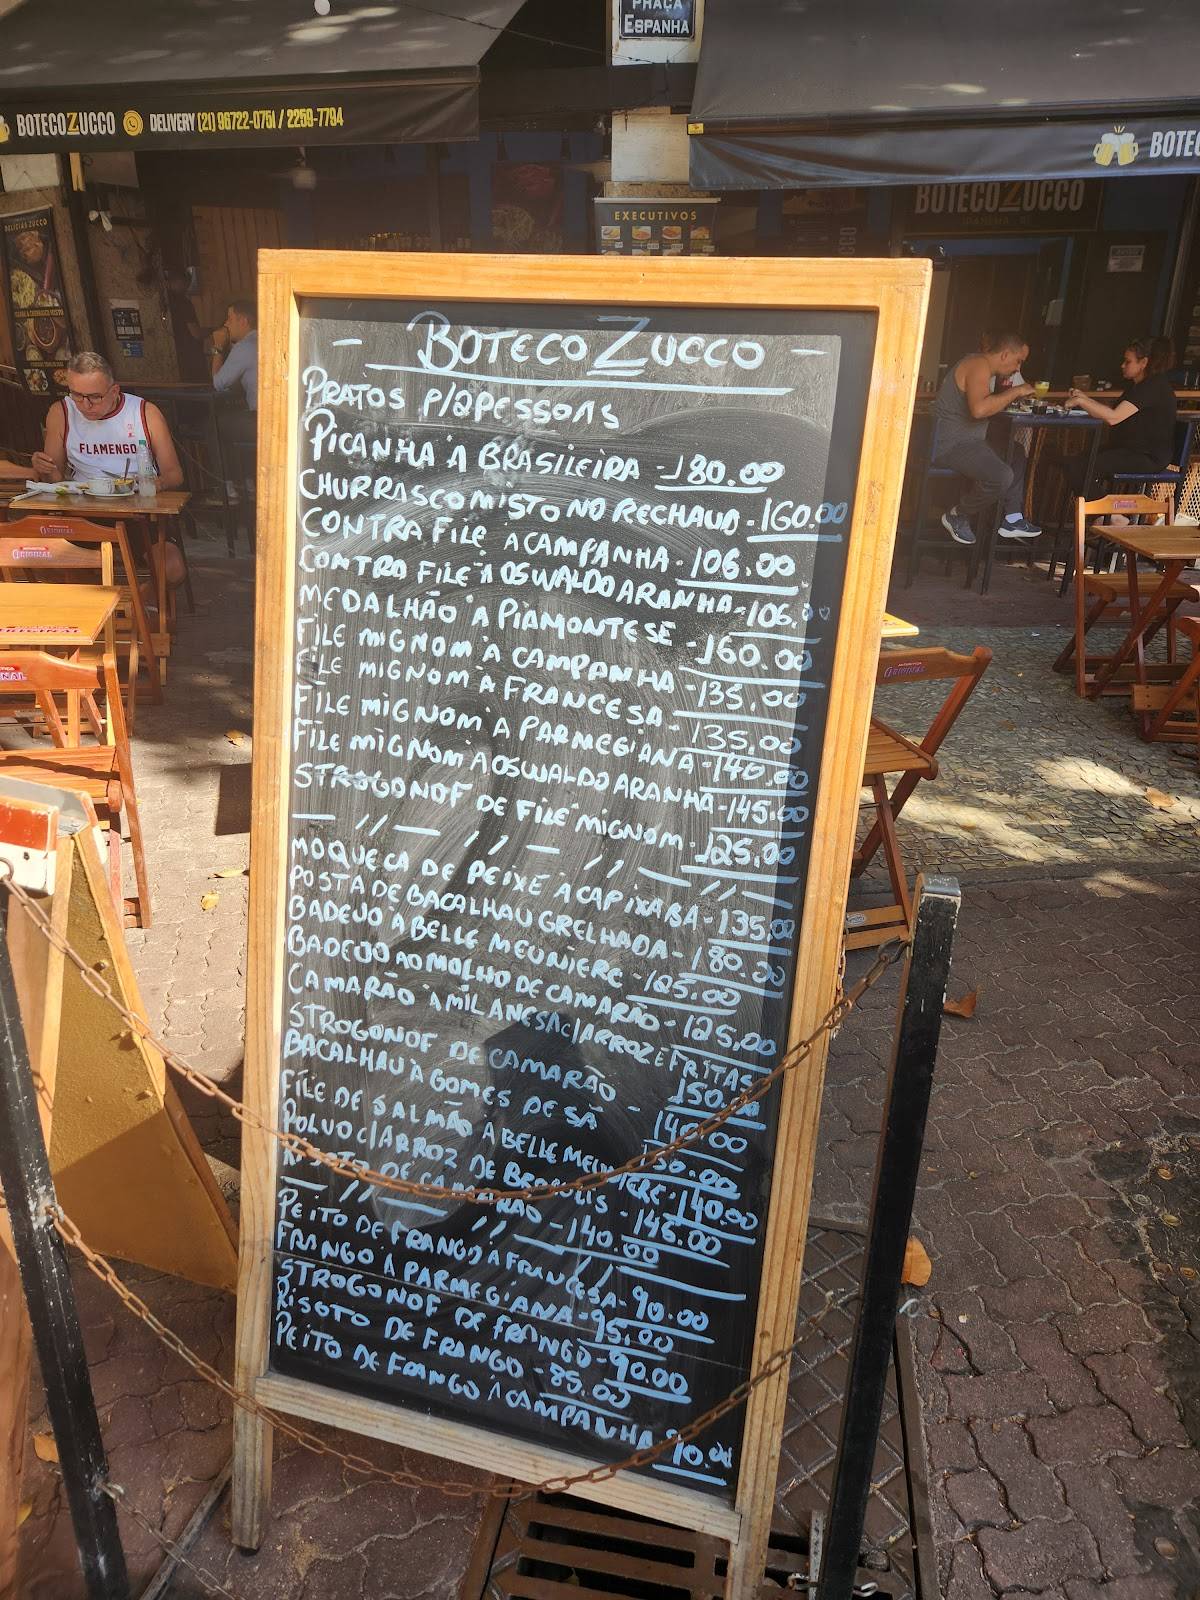 PRAÇA
ESPANHA
BOTECOZUCCO DELIVERY (21) 96722-0751 / 2259-7794
BOTEC
BOTECOZUCCO
EXECUTIVOS
DELÍCIAS ZUCCO
FLAMENGO
ORIGINAL
ORIGINAL
- BOTECO ZUCCO -
PRATOS P/2 PESSOAS
PICANHA À BRASILEIRA - 180.00
CHURRASCO MISTO NO RECHAUD - 160.00
CONTRA FILÉ À CAMPANHA - 106.00
CONTRA FILÉ À OSWALDO ARANHA - 106.00
MEDALHÃO À PIAMONTESE - 160.00
FILE MIGNOM À CAMPANHA - 135,00
FILE MIGNOM À FRANCESA - 135,00
FILE MIGNOM À PARMEGIANA - 140,00
FILE MIGNOM À OSWALDO ARANHA - 145.00
STROGONOF DE FILÉ MIGNOM - 125,00
— // — // — // — // —
MOQUECA DE PEIXE À CAPIXABA - 135.00
POSTA DE BACALHAU GRELHADA - 180.00
BADEJO À BELLE MEUNIERE - 125.00
BADEJO AO MOLHO DE CAMARÃO - 125,00
CAMARÃO À MILANESA C/ARROZ E FRITAS
150.00
STROGONOF DE CAMARÃO - 140.00
BACALHAU À GOMES DE SÁ
FILE DE SALMÃO À BELLE MEUNIERE - 140.00
POLVO C/ARROZ DE BROCOLIS - 145.00
RISOTO DE CAMARÃO - 140.00
— // — // — // —
PEITO DE FRANGO À FRANCESA - 90.00
FRANGO À PARMEGIANA - 95,00
STROGONOF DE FRANGO - 90.00
RISOTO DE FRANGO - 85.00
PEITO DE FRANGO À CAMPANHA 90.00